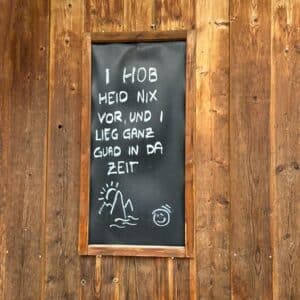 I HOB
HEID NIX
VOR, UND I
LIEG GANZ
GUAD IN DA
ZEIT